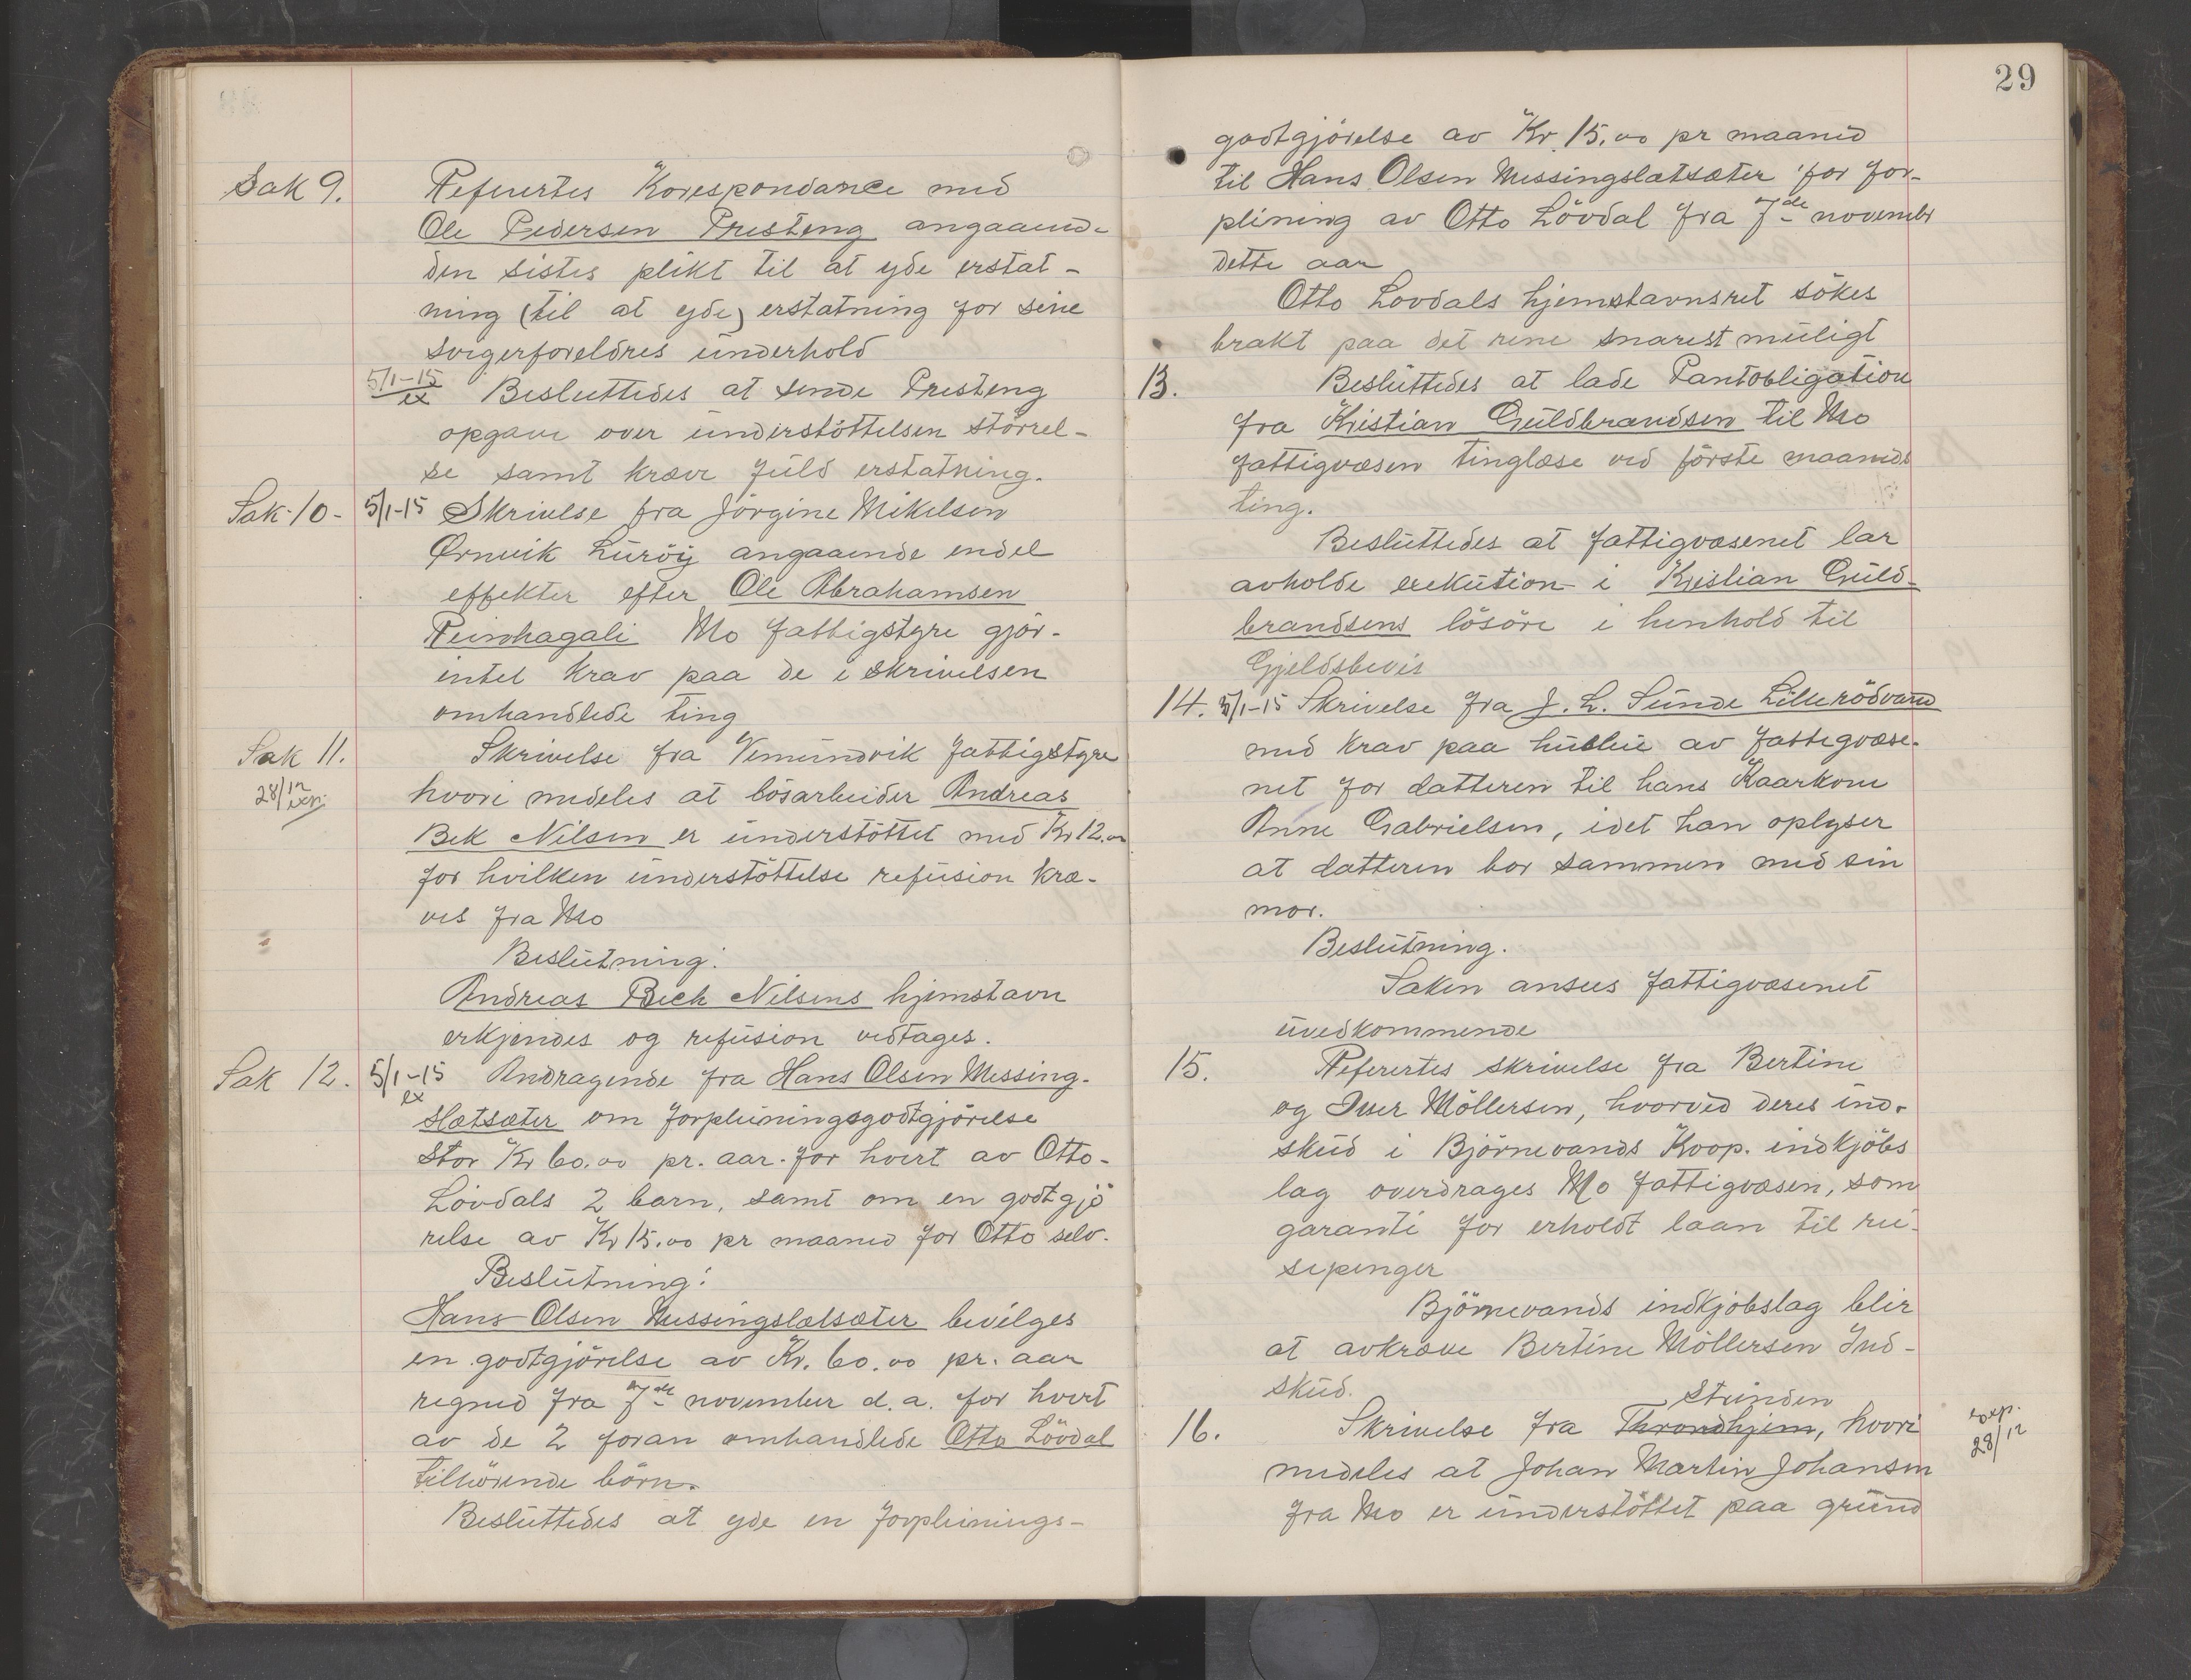 Sak 9. Referertes Korespondance med
Ole Pedersen Presteng angaaende
den sistes plikt til at yde erstat-
ning (til at yde) erstatning for sine
svigerforeldres underhold
5/1-15
ex Besluttedes at sende Presteng
opgave over understöttelsen störrel-
se samt kræve fuld erstatning.
Sak 10- 5/1-15 Skrivelse fra Jörgine Mikelsen
Ørnvik Luröy angaaende endel
effekter efter Ole Abrahamsen
Reinhagali Mo fattigstyre gjör-
intet krav paa de i skrivelsen
omhandlede ting
Sak 11. Skrivelse fra Vemundvik fattigstyre
28/12 exp. hvori medeles at lösarbeider Andreas
Bek Nilsen er understöttet med Kr 12.00
for hvilken understöttelse refusion kræ-
ves fra Mo
Beslutning:
Andreas Bech Nilsens hjemstavn
erkjendes og refusion vedtages.
Sak 12. 5/1-15 Andragende fra Hans Olsen Messing-
ex
slætsæter om forpleiningsgodtgjörelse
stor Kr 60.00 pr. aar for hvert av Otto-
Lövdals 2 barn, samt om en godtgjö
relse av Kr 15.00 pr maaned for Otto selv.
Beslutning:
Hans Olsen Messingslætsæter bevilges
en godtgjörelse av Kr. 60.00 pr. aar
regned fra 7de november d.a. for hvert
av de 2 foran omhandlede Otto Lövdal
tilhörende börn.
Besluttedes at yde en forpleinings-
29
godtgjörelse av Kr. 15.00 pr maaned
til Hans Olsen Messingslætsæter for for-
pleining av Otto Lövdal fra 7de november
dette aar
Otto Lovdals hjemstavnsret sökes
brakt paa det rene snarest muligt
13. Besluttedes at lade Pantobligation
fra Kristian Guldbrandsen til Mo
fattigvæsen tinglæse ved förste maaneds
ting.
Besluttedes at fattigvæsenet lar
avholde exekution i Kristian Guld-
brandsens lösöre i henhold til
Gjeldsbevis
14. 5/1-15 Skrivelse fra J. L. Sunde Lillerödvand
med krav paa husleie av fattigvæse-
net for datteren til hans Kaarkone
Anne Gabrielsen, idet han oplyser
at datteren bor sammen med sin
mor.
Beslutning.
Saken ansees fattigvæsenet
uvedkommende
15. Referertes skrivelse fra Bertine
og Iver Möllersen, hvorved deres ind-
skud i Björnevands Koop. indkjöbs
lag overdrages Mo fattigvæsen, som
garanti for erholdt laan til rei-
sepenger
Björnevands indkjöbslag blir
at avkræve Bertine Möllersen Ind-
skud.
Strinden
16. Skrivelse fra Throndhjem, hvori
exp.
28/12
medeles at Johan Martin Johansen
fra Mo er understöttet paa grund